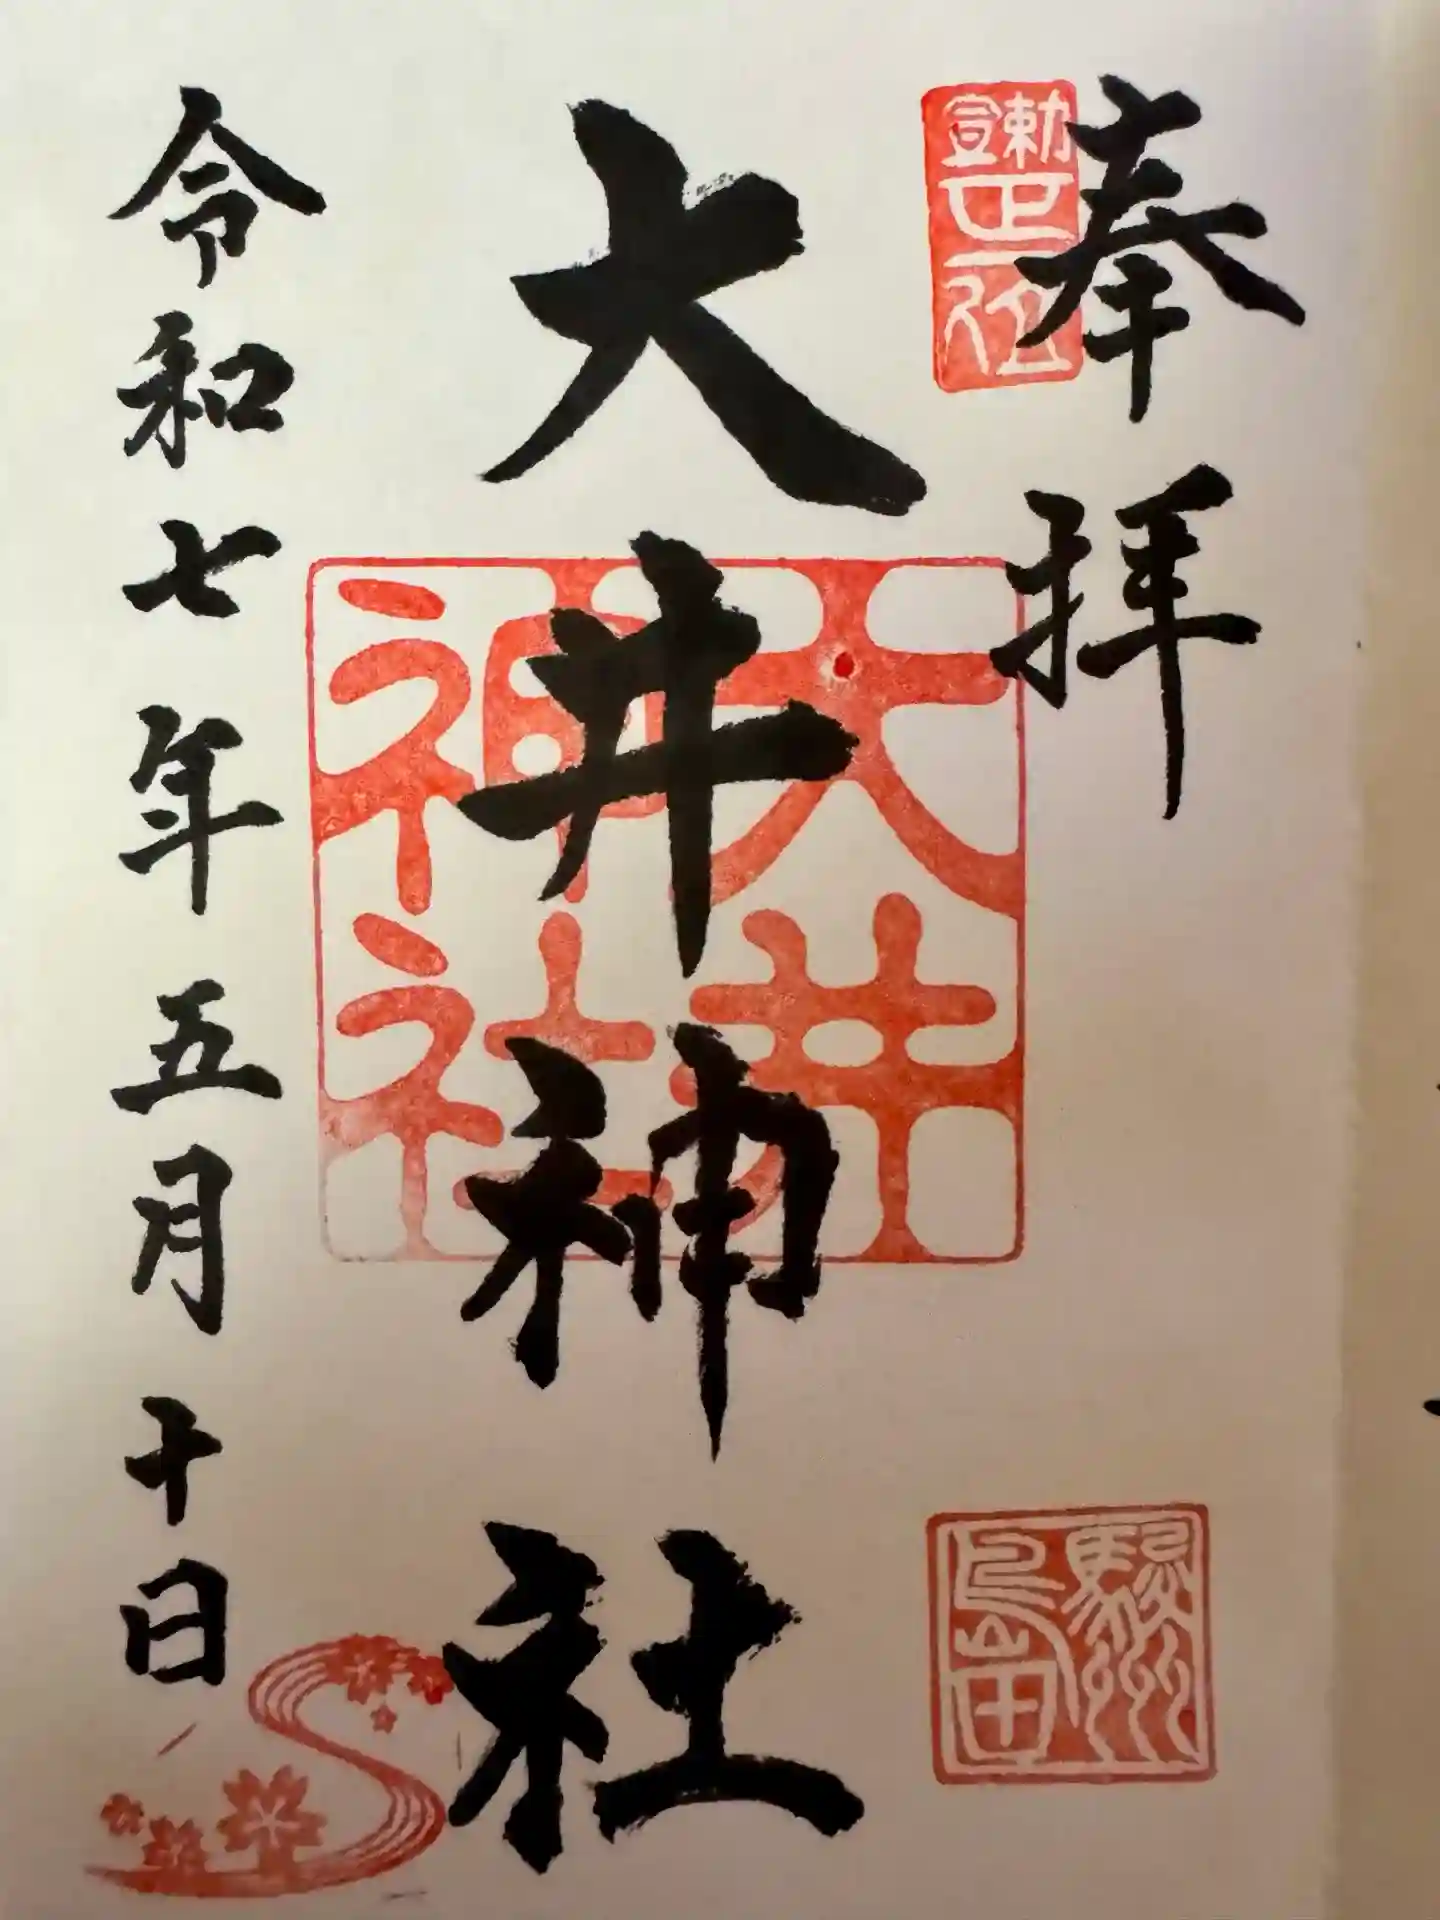 奉拝
勅宣
正一位
大井神社
大井神社
駿州
島田
令和七年五月十日